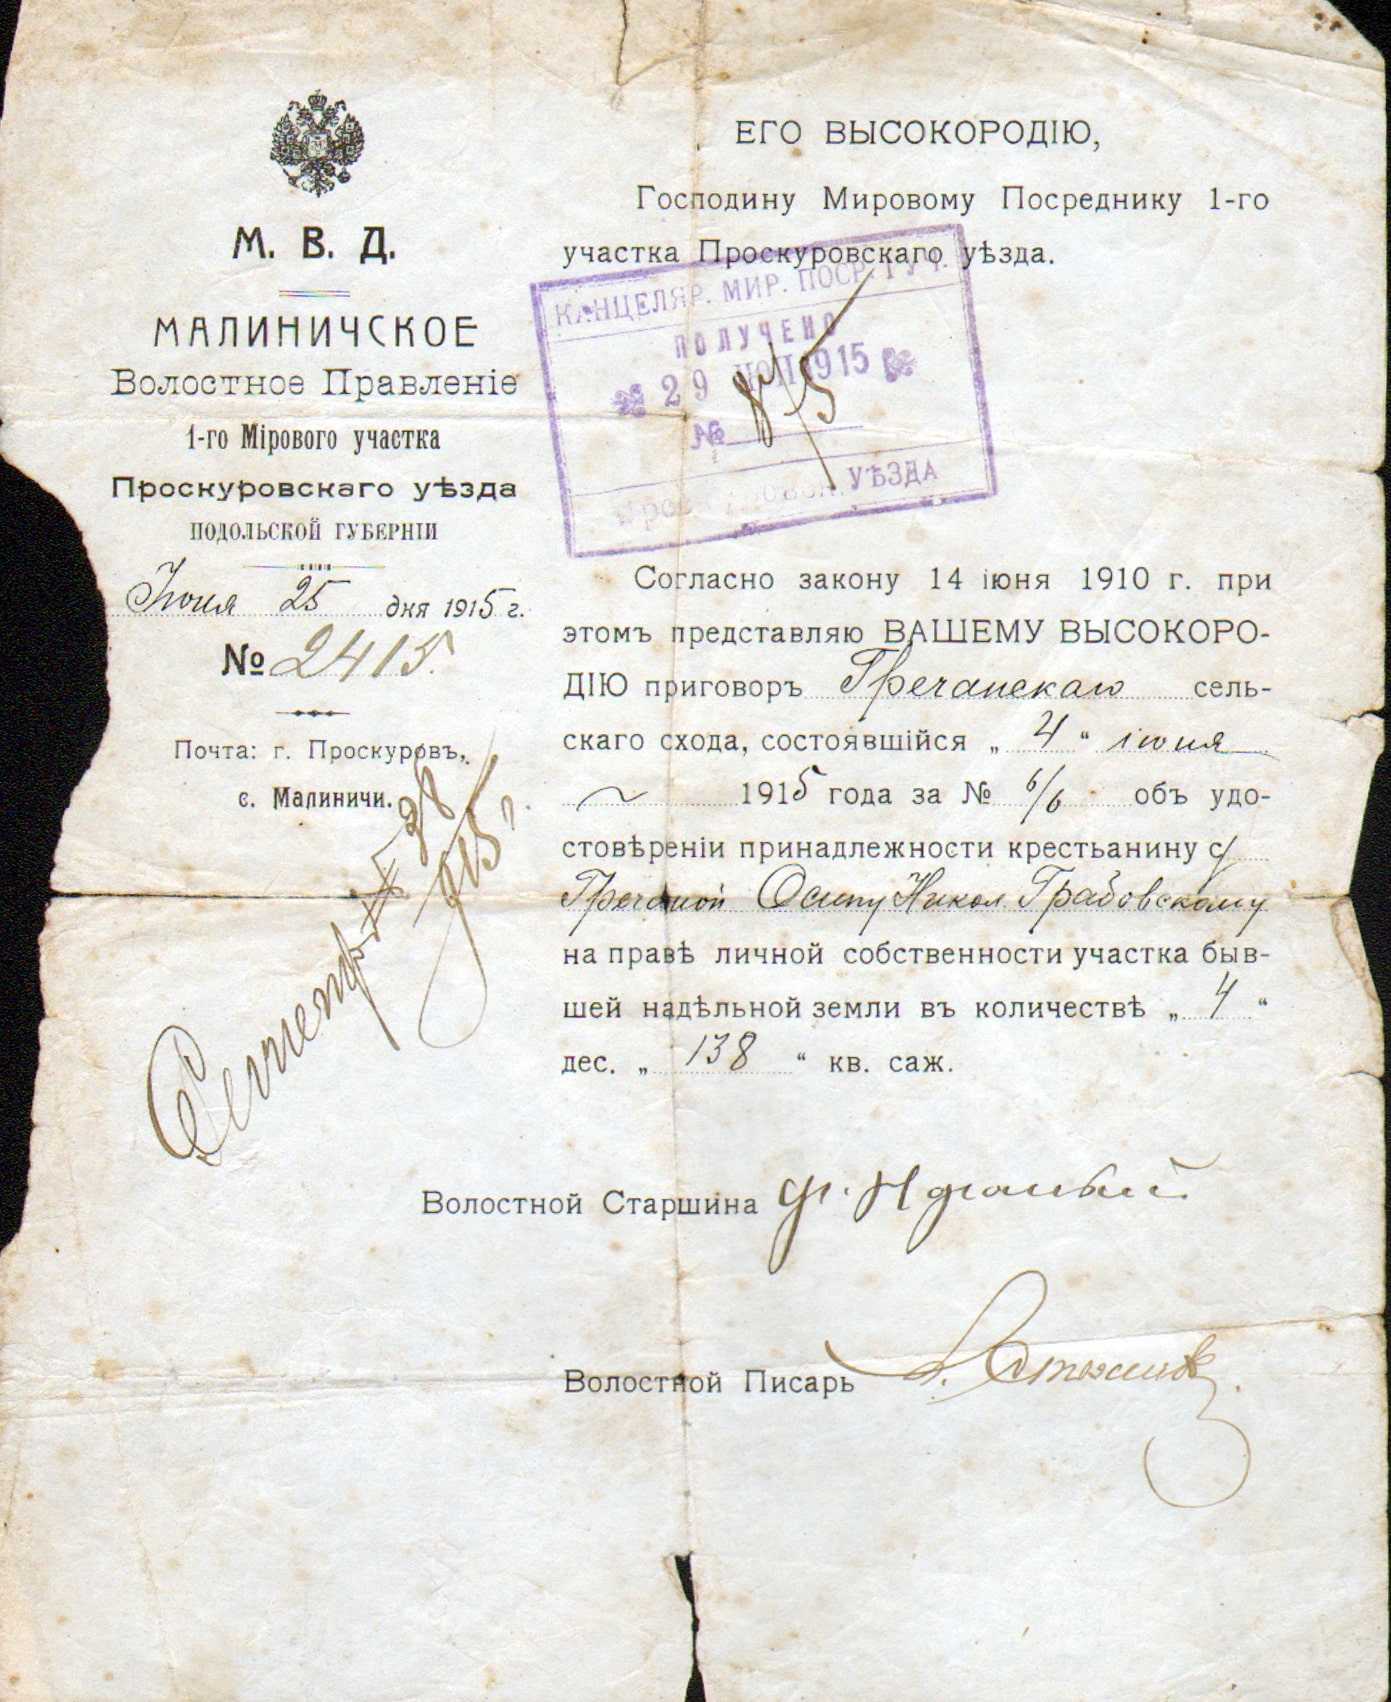 М. В. Д.
МАЛИНИЧСКОЕ
Волостное Правленіе
1-го Мірового участка
Проскуровскаго уѣзда
ПОДОЛЬСКОЙ ГУБЕРНІИ
Июня 25 дня 1915 г.
№ 2415.
Почта: г. Проскуровъ,
с. Малиничи.
ЕГО ВЫСОКОРОДІЮ,
Господину Мировому Посреднику 1-го
участка Проскуровскаго уѣзда.
КАНЦЕЛЯР. МИР. ПОСР. 1 УЧ.
ПОЛУЧЕНО
29 ИЮН 1915
№
УѢЗДА
Согласно закону 14 іюня 1910 г. при
этомъ представляю ВАШЕМУ ВЫСОКОРО-
ДІЮ приговоръ Гречанскаго сель-
скаго схода, состоявшійся „ 4 “ іюня
1915 года за № 6/6 объ удо-
стовѣреніи принадлежности крестьанину с/
Гречаной Осипу Никол. Грабовскому
на правѣ личной собственности участка быв-
шей надѣльной земли въ количествѣ „ 4 “
дес. „ 138 “ кв. саж.
Волостной Старшина
Волостной Писарь